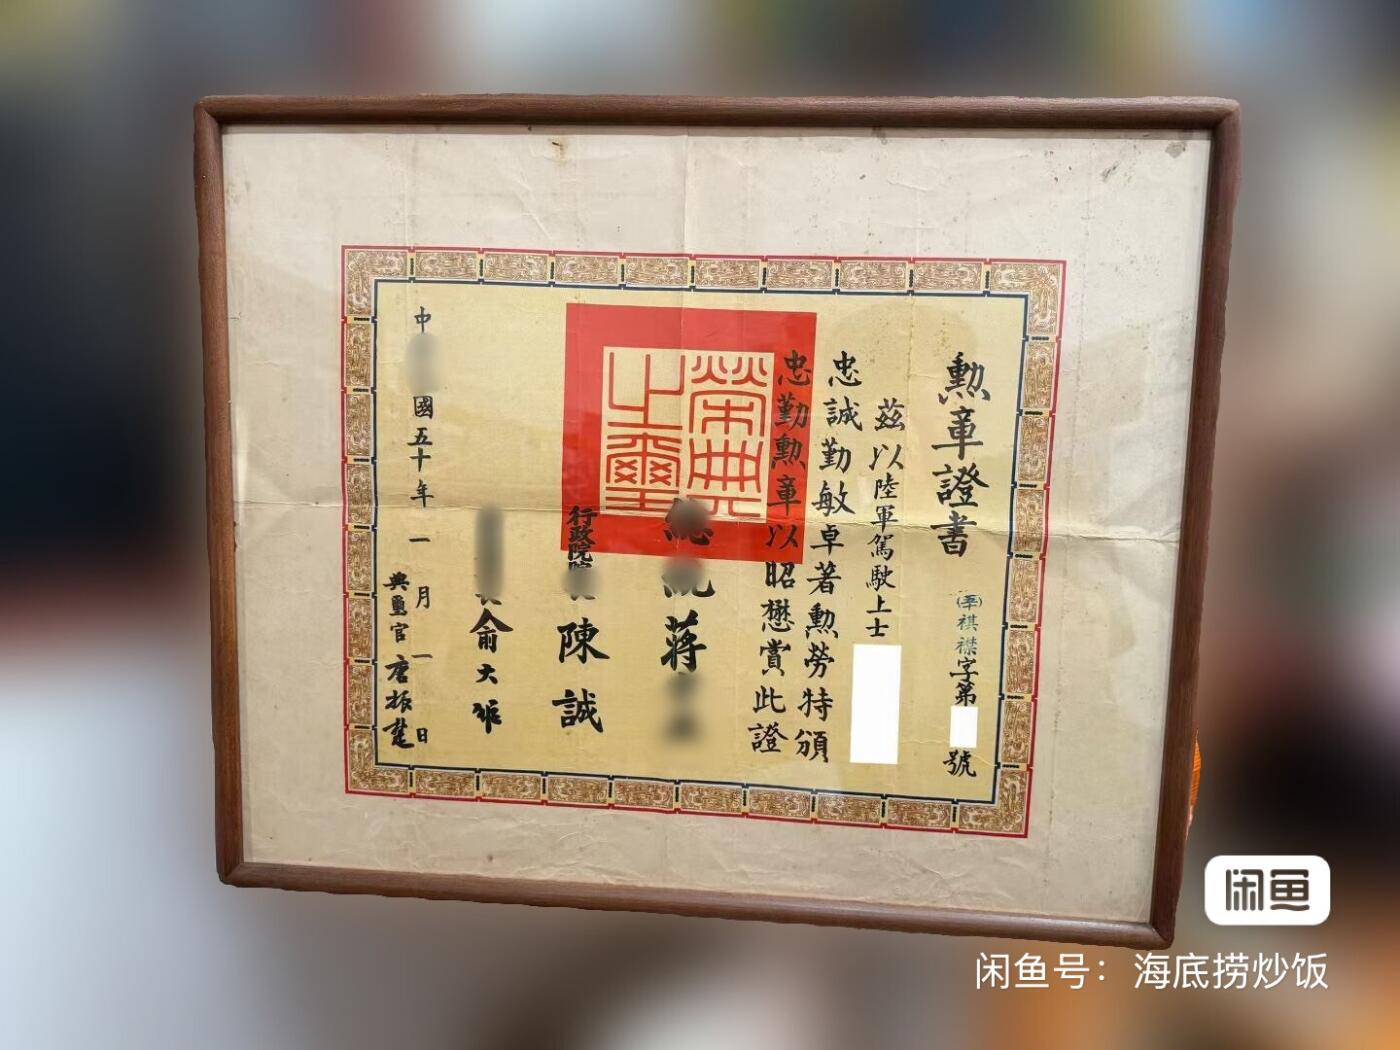 勲章證書
㊣祺襟字第 號
茲以陸軍駕駛上士
忠誠勤敏卓著勲勞特頒
忠勤勲章以昭懋賞此證
榮典
之璽
總統蔣
行政院院 陳誠
俞大維
中 國五十年一月一日
典璽官唐振楚
闲鱼
闲鱼号：海底捞炒饭